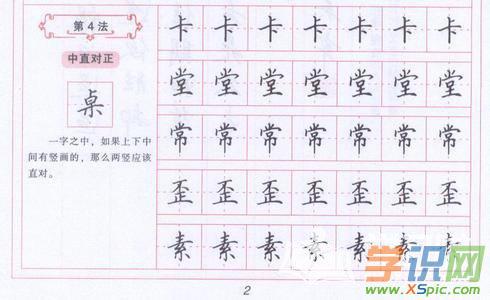 第4法
中直对正
桌
一字之中，如果上下中
间有竖画的，那么两竖应该
直对。
卡 卡 卡 卡 卡 卡 卡
堂 堂 堂 堂 堂 堂 堂
常 常 常 常 常 常 常
歪 歪 歪 歪 歪 歪 歪
素 素 素 素 素 素 素
2
学识网
www.XSpic.com